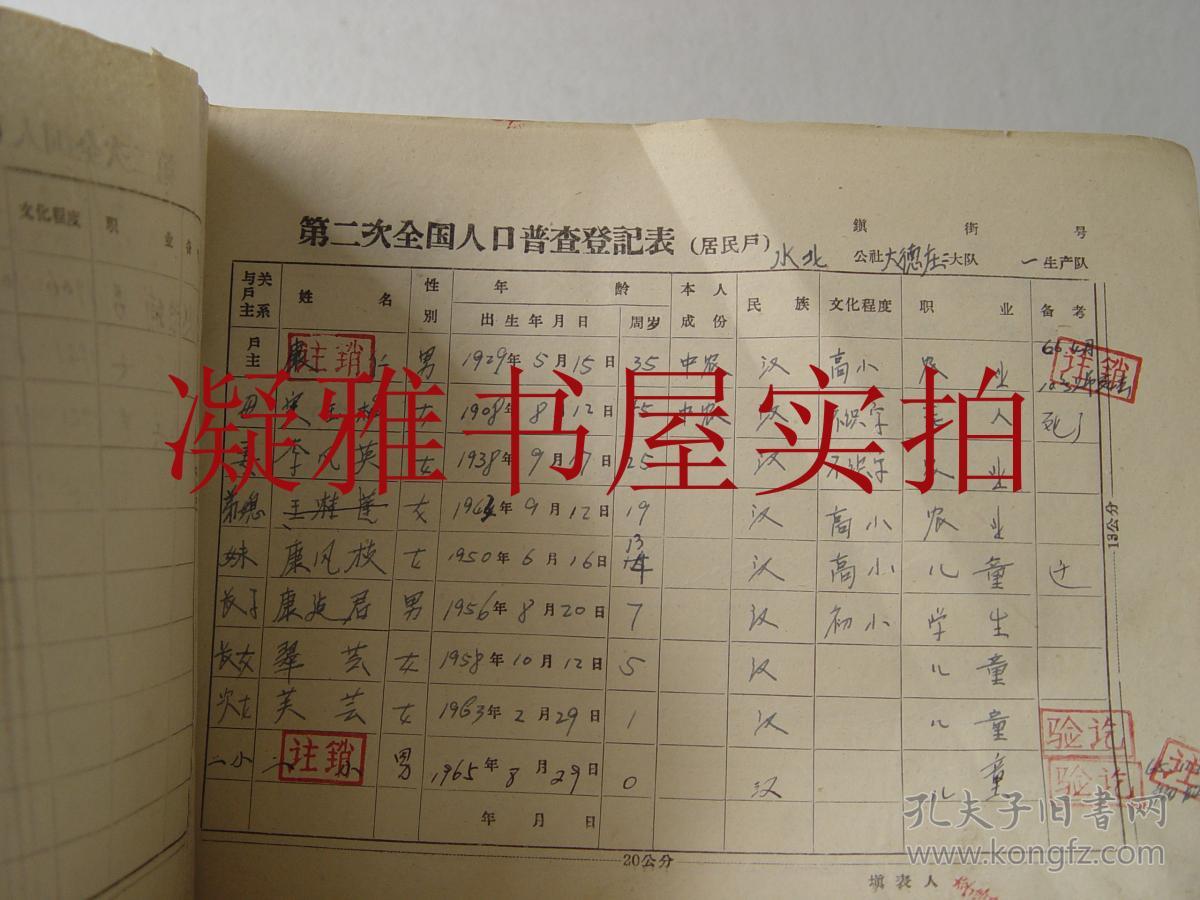 第二次全国人
文化程度 职 业
第二次全国人口普查登記表（居民戶） 鎮 街 号
水北 公社 大德庄二 大队 一 生产队
与戶主关系 姓 名 性別 年 齡 本人成份 民 族 文化程度 职 业 备 考
出生年月日 周岁
戶主 康 仁 注销 男 1929年5月15日 35 中农 汉 高小 农 业 注销
母 女 1908年8月12日 中农 汉 不识字 人 死了
妻 李凤英 女 1938年9月7日 25 汉 不识字 业
弟媳 王 莲 女 年9月12日 19 汉 高小 农业
妹 康凤枝 女 1950年6月16日 13 汉 高小 儿童 迁
长子 康 君 男 1956年8月20日 7 汉 初小 学生
长女 翠芸 女 1958年10月12日 5 汉 儿童
次女 芙芸 女 1963年2月29日 1 汉 儿童 验讫
二小 注銷 男 1965年8月29日 0 汉 儿童 验讫
年 月 日
13公分
20公分
填表人
凝雅书屋实拍
孔夫子旧书网
www.kongfz.com